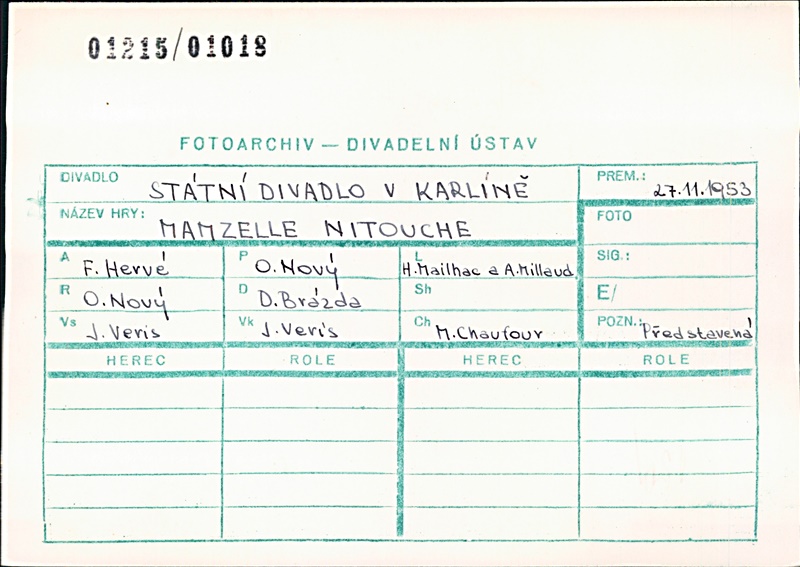 01215/01018
FOTOARCHIV — DIVADELNÍ ÚSTAV
DIVADLO STÁTNÍ DIVADLO V KARLÍNĚ PREM.: 27.11.1953
NÁZEV HRY: MAMZELLE NITOUCHE FOTO
A F. Hervé P O. Nový L H. Mailhac a A. Millaud SIG.:
R O. Nový D D. Brázda Sh E/
Vs J. Veris Vk J. Veris Ch M. Chaufour POZN.: Představená
HEREC ROLE HEREC ROLE